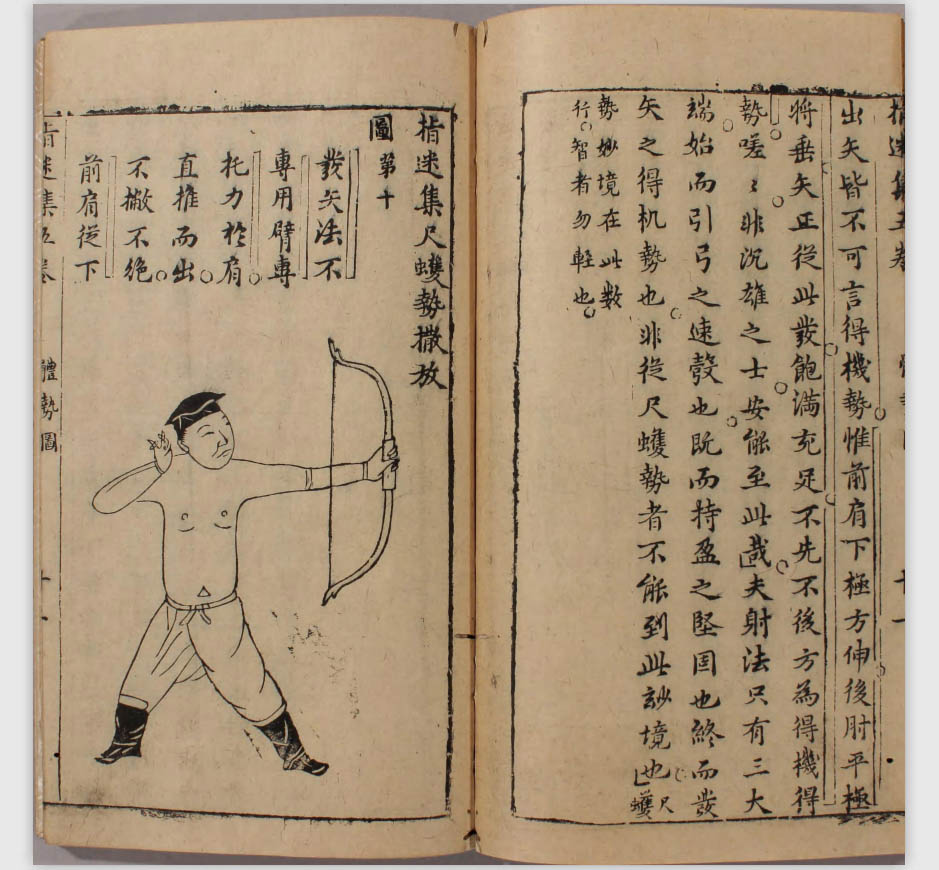 指迷集五卷
出矢皆不可言得機勢惟前肩下極方伸後肘平極
將垂矢正從此發飽滿充足不先不後方為得機得
勢嗟〻非沉雄之士安能至此哉夫射法只有三大
端始而引弓之速彀也既而持盈之堅固也終而發
矢之得机勢也非從尺蠖勢者不能到此妙境也尺蠖
勢妙境在此數
行智者勿輕也
指迷集尺蠖勢撒放
圖第十
發矢法不
專用臂專
托力於肩
直推而出
不撇不絕
前肩從下
指迷集五卷 體勢圖 十一